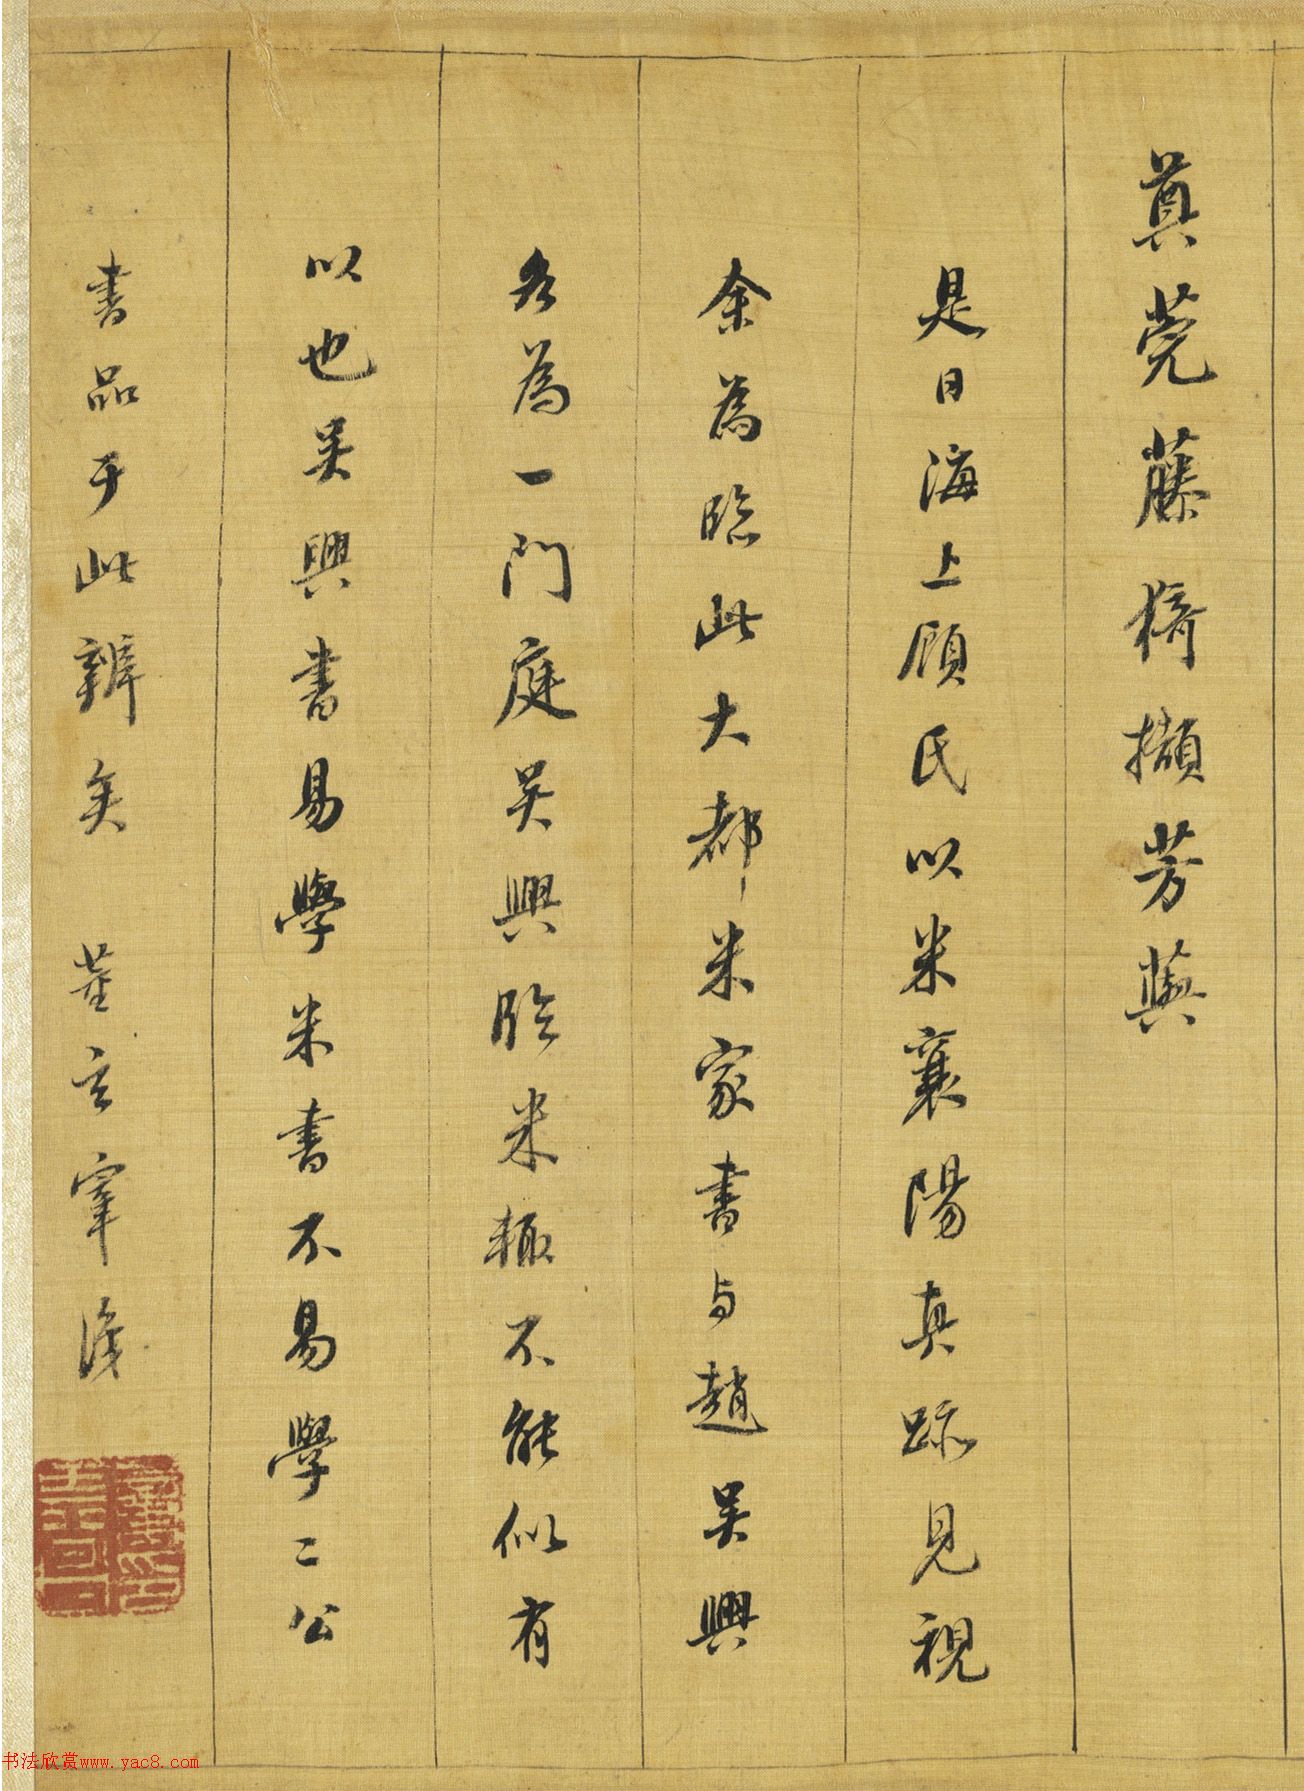 莞藤猗擷芳蕪
是日海上顧氏以米襄陽真跡見視
余為臨此大都米家書与趙吳興
各為一門庭吳興臨米輒不能似有
以也吳興書易學米書不易學二公
書品于此辨矣 董玄宰識
书法欣赏www.yac8.com